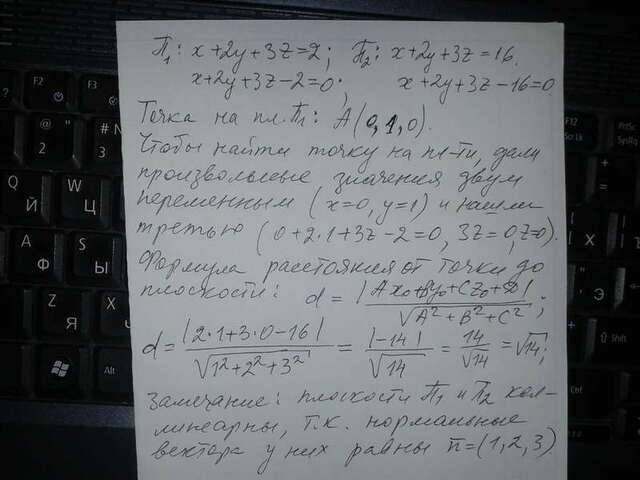 П₁: x+2y+3z=2; П₂: x+2y+3z=16.
x+2y+3z-2=0; x+2y+3z-16=0
Точка на пл. П₁: A(0,1,0).
Чтобы найти точку на пл-ти, дали
произвольные значения двум
переменным (x=0, y=1) и нашли
третью (0+2·1+3z-2=0, 3z=0, z=0).
Формула расстояния от точки до
плоскости: d = |Ax₀+By₀+Cz₀+D| / √(A²+B²+C²);
d = |2·1+3·0-16| / √(1²+2²+3²) = |-14| / √14 = 14/√14 = √14;
Замечание: плоскости П₁ и П₂ кол-
линеарны, т.к. нормальные
вектора у них равны n̄=(1,2,3)
F2
F3
@
2
#
3
№
Q
Й
W
Ц
A
Ф
S
Ы
Z
Я
X
F12
ScrLk
PrtSc
SysRq
+
=
Х
Ъ
Э